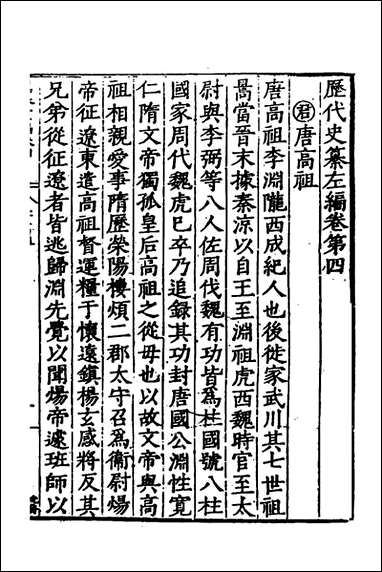 歷代史纂左編卷第四
君唐高祖
唐高祖李淵隴西成紀人也後徙家武川其七世祖
暠當晉末據秦涼以自王至淵祖虎西魏時官至太
尉與李弼等八人佐周代魏有功皆為柱國號八柱
國家周代魏虎已卒乃追錄其功封唐國公淵性寬
仁隋文帝獨孤皇后高祖之從母也以故文帝與高
祖相親愛事隋歷滎陽樓煩二郡太守召為衞尉煬
帝征遼東遣高祖督運糧于懷遠鎮楊玄感將反其
兄弟從征遼者皆逃歸淵先覺以聞煬帝遽班師以